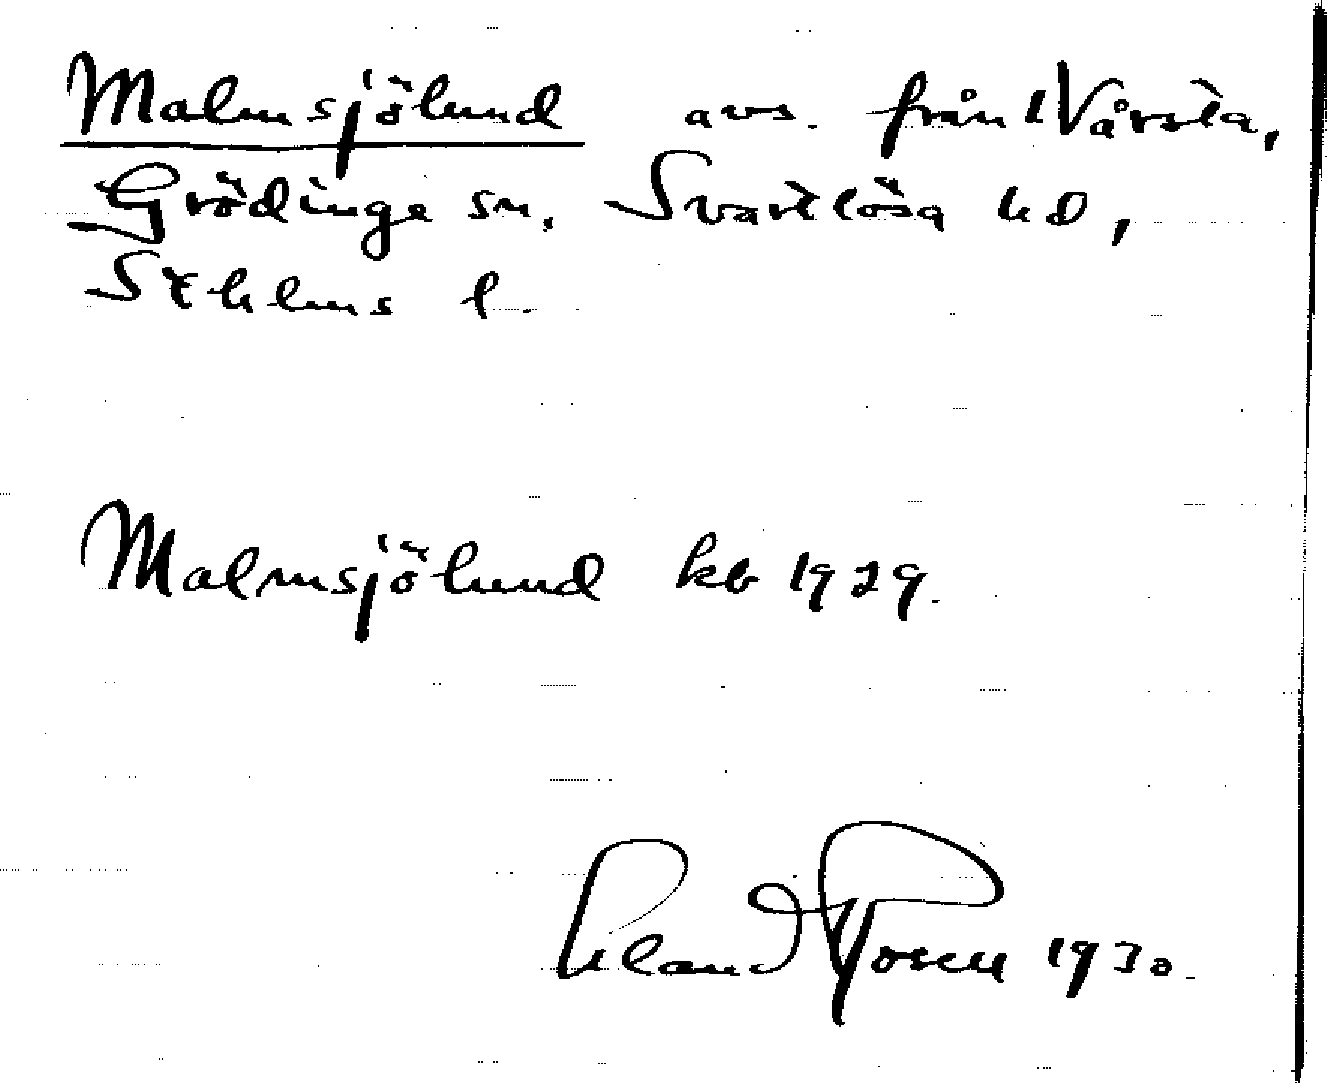 Malmsjölund avs. från 1 Vårsta,
Grödinge sn. Svartlösa hd,
Sthlms l.
Malmsjölund kb 1929.
1930.